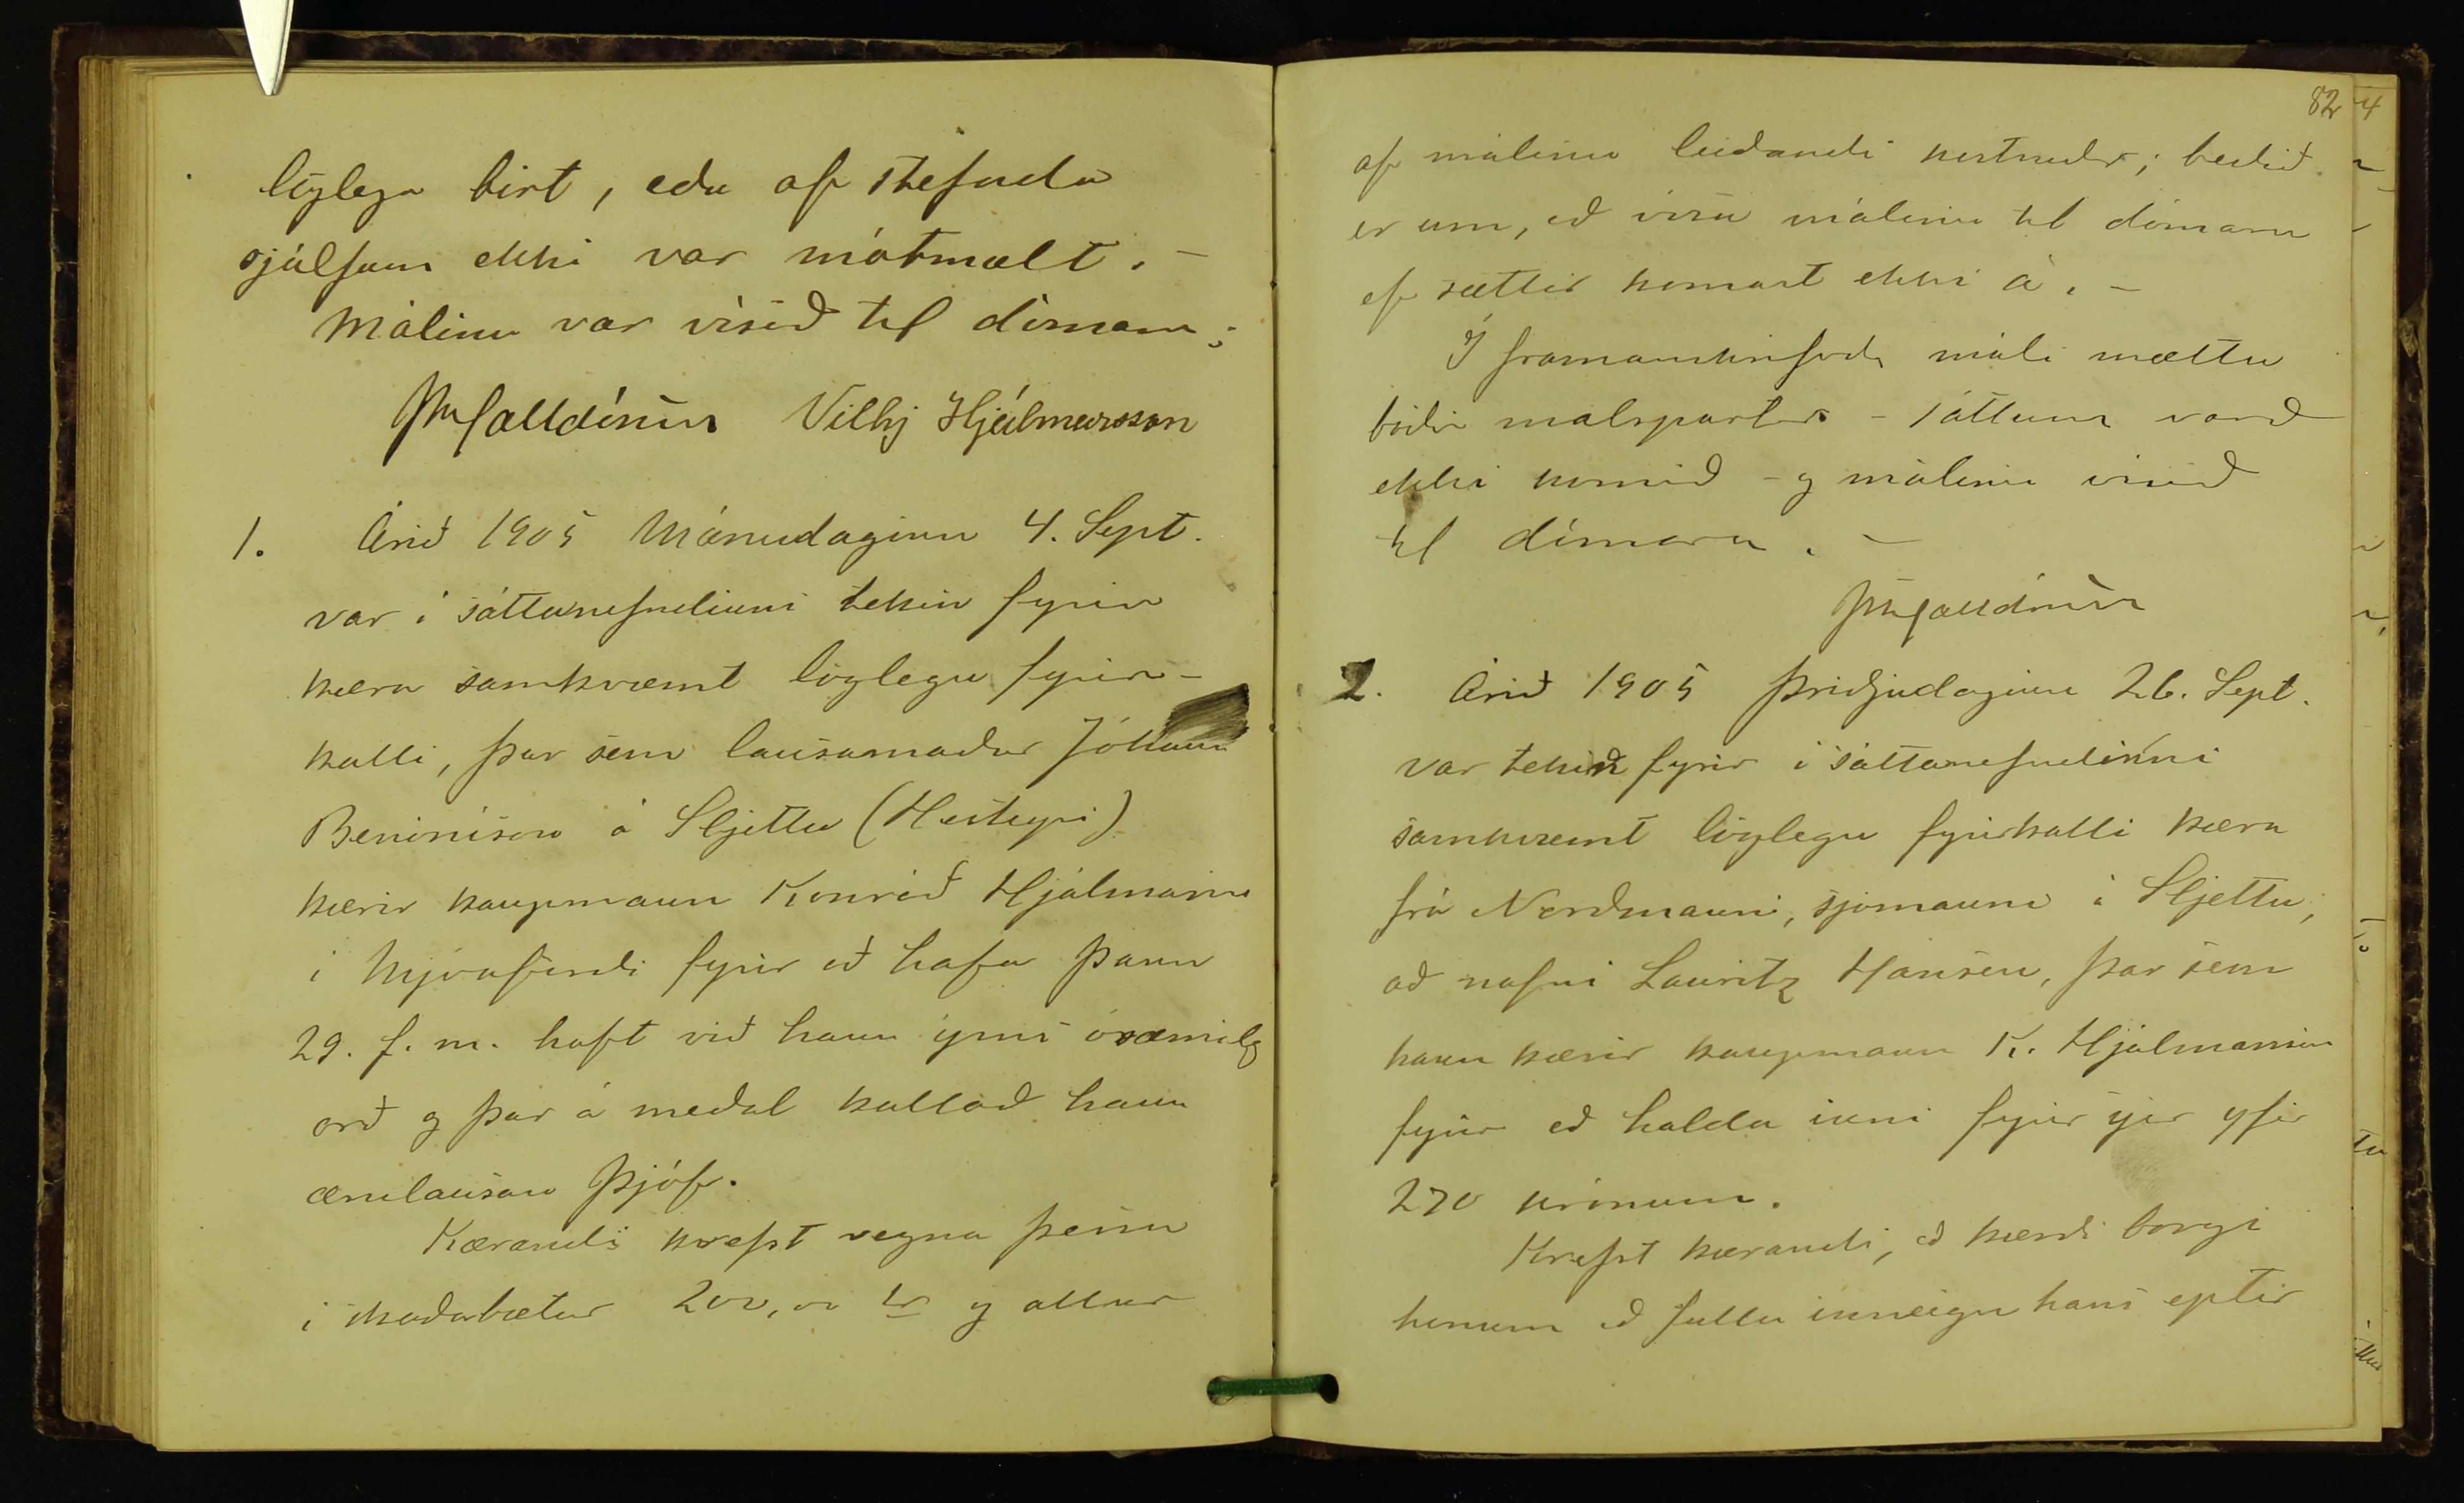 löglega birt, eða af stefnda
sjálfum ekki var mótmælt. –
Málinu var vísað til dómara;
Vilhj Hjálmarsson
1. Árið 1905 Mánudaginn 4. Sept.
var í sáttanefndinni tekin fyrir
kæra samkvæmt löglegu fyrir-
kalli, þar sem lausamaður Jóhann
á Sljettu (Hesteyri)
kærir kaupmann Konráð Hjálmarss
í Mjóafirði fyrir að hafa þann
29. f. m. haft við hann ýms ósæmileg
orð og þar á meðal kallað hann
ærulausan þjóf.
Kærandi krefst vegna þessa
í skaðabætur 200,00 kr og allan
82
af málinu leiðandi kostnað; beðið
er um, að vísa málinu til dómara
ef sættir komast ekki á. –
Í framanskrifuðu máli mættu
báðir málspartar – sáttum varð
ekki komið – og málinu vísað
til dómara. –
2. Árið 1905 Þriðjudaginn 26. Sept.
var tekin fyrir í sáttanefndinni
samkvæmt löglegu fyrirkalli kæra
frá Norðmanni, sjómanni á Sljettu,
að nafni Lauritz Hansen, þar sem
hann kærir kaupmann K. Hjálmarsson
fyrir að halda inni fyrir sjer yfir
270 krónum.
Krefst kærandi, að kærði borgi
honum að fullu inneign hans eptir